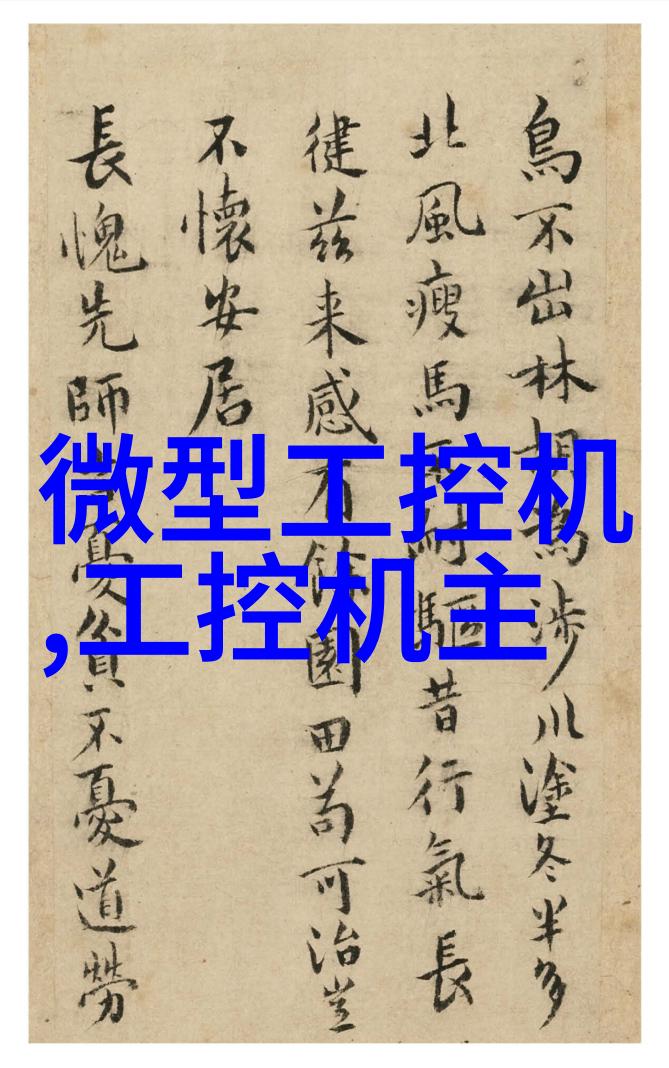 鳥不出林胡為涉川塗冬半多
北風瘦馬不耐驅昔行氣長
健茲来感有餘園田苟可治豈
不懷安居
長愧先師憂貧不憂道勞
微型工控机
,工控机主